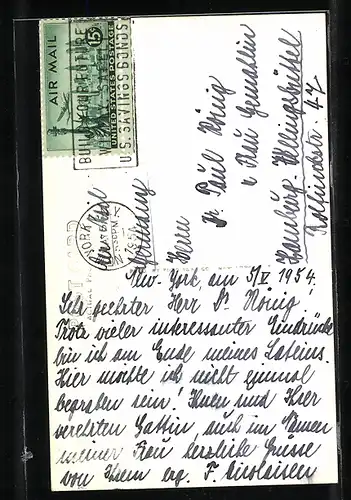 AIR MAIL
15¢
UNITED STATES POSTAGE
BUILD YOUR FUTURE
U.S. SAVINGS BONDS
YORK
1954
Air Mail
Germany
Herrn
Dr. Paul König
u. Frau Gemahlin
Hamburg-Wellingsbüttel
New-York, am 5/V 1954.
Sehr geehrter Herr Dr. König!
Trotz vieler interessanter Eindrücke
bin ich am Ende meines Lateins.
Hier möchte ich nicht einmal
begraben sein! Ihnen und Ihrer
verehrten Gattin, auch im Namen
meiner Frau herzliche Grüsse
von Ihrem erg. F. Nicolaisen